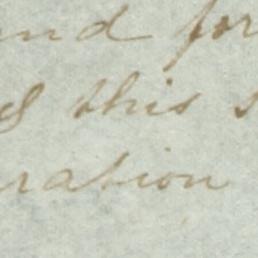 nd for
this s
ration